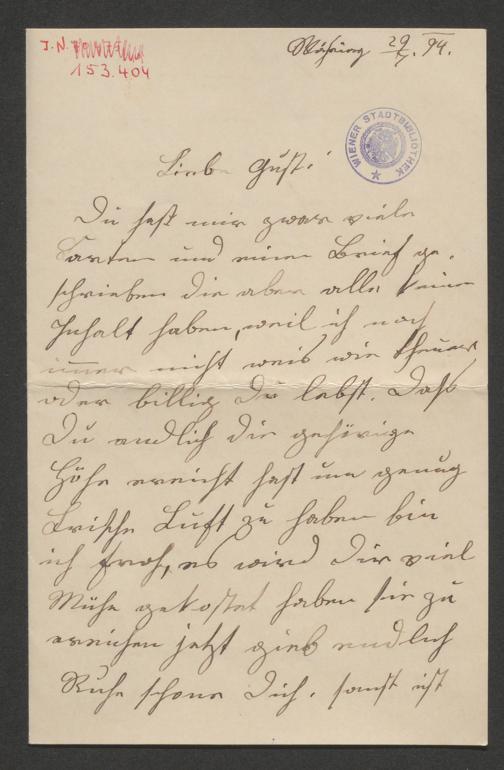 J. N.
153.404
29/7. 94.
WIENER STADTBIBLIOTHEK
Liebe Gusti!
Du hast mir zwar viele
Karten und einen Brief ge-
schrieben die aber alle keinen
Inhalt haben, weil ich noch
immer nicht weis wie theuer
oder billig Du lebst. Dass
Du endlich die gehörige
Höhe erreicht hast um genug
frische Luft zu haben bin
ich froh, es wird Dir viel
Mühe gekostet haben sie zu
ereichen jetzt gieb endlich
Ruhe schone Dich. sonst ist